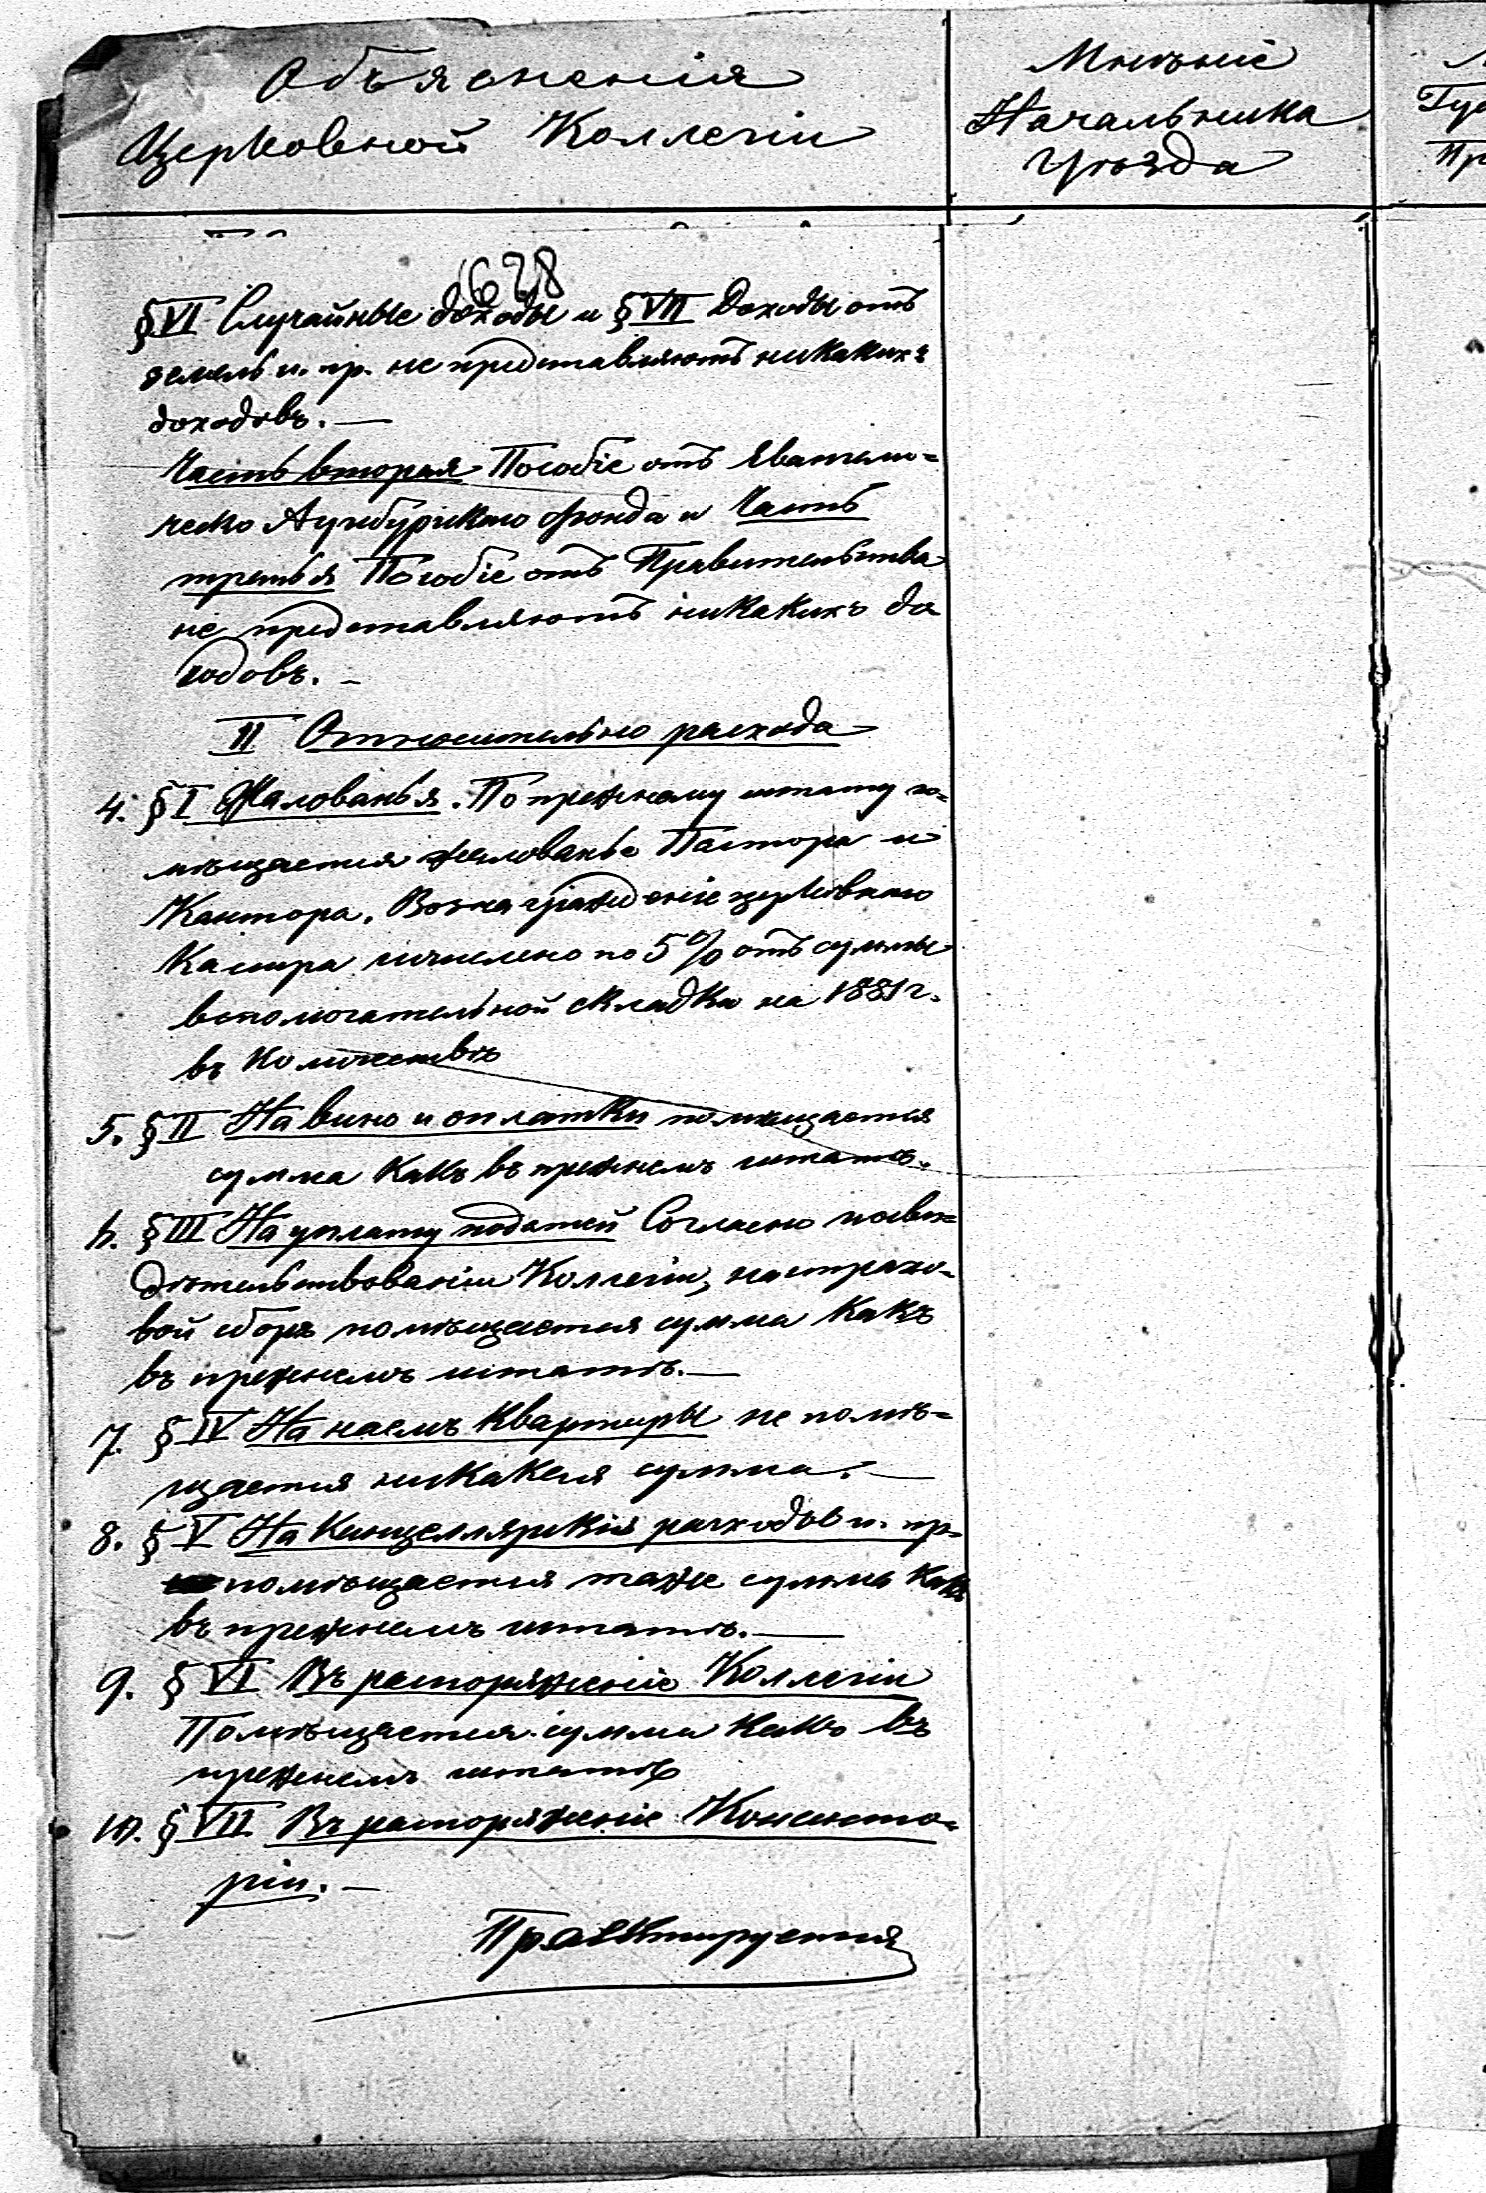 Объясненія
Церковной Коллегіи
Мнѣніе
Начальника
Уѣзда
Гу
Пр
628
§ VI Случайные доходы и § VII Доходы отъ
земель и. пр. не представляютъ никакихъ
доходовъ. —
Часть вторая Пособіе отъ Евангели=
ческо Аугсбургскаго фонда и Часть
третья Пособіе отъ Правительства
не представляютъ никакихъ до
ходовъ. —
II Относительно расхода
4. § I Жалованья. По прежнему штату по=
мѣщается жалованье Пастора и
Кантора. Вознагражденіе церковнаго
Касира исчислено по 5% отъ суммы
вспомогательной складки на 1881 г.
въ количествѣ
5. § II На вино и оплатки помѣщается
сумма какъ въ прежнемъ штатѣ.
6. § III На уплату податей Согласно
Коллегіи, на страхо=
вой сборъ помѣщается сумма какъ
въ прежнемъ штатѣ. —
7. § IV На наемъ квартиры не помѣ=
щается никакая сумма. —
8. § V На Канцеллярскія расходы и. пр.
помѣщается таже сумма какъ
въ прежнемъ штатѣ. —
9. § VI Въ распоряженіе Коллегіи
Помѣщается сумма какъ въ
прежнемъ штатѣ
10. § VII Въ распоряженіе Консисто=
ріи. —